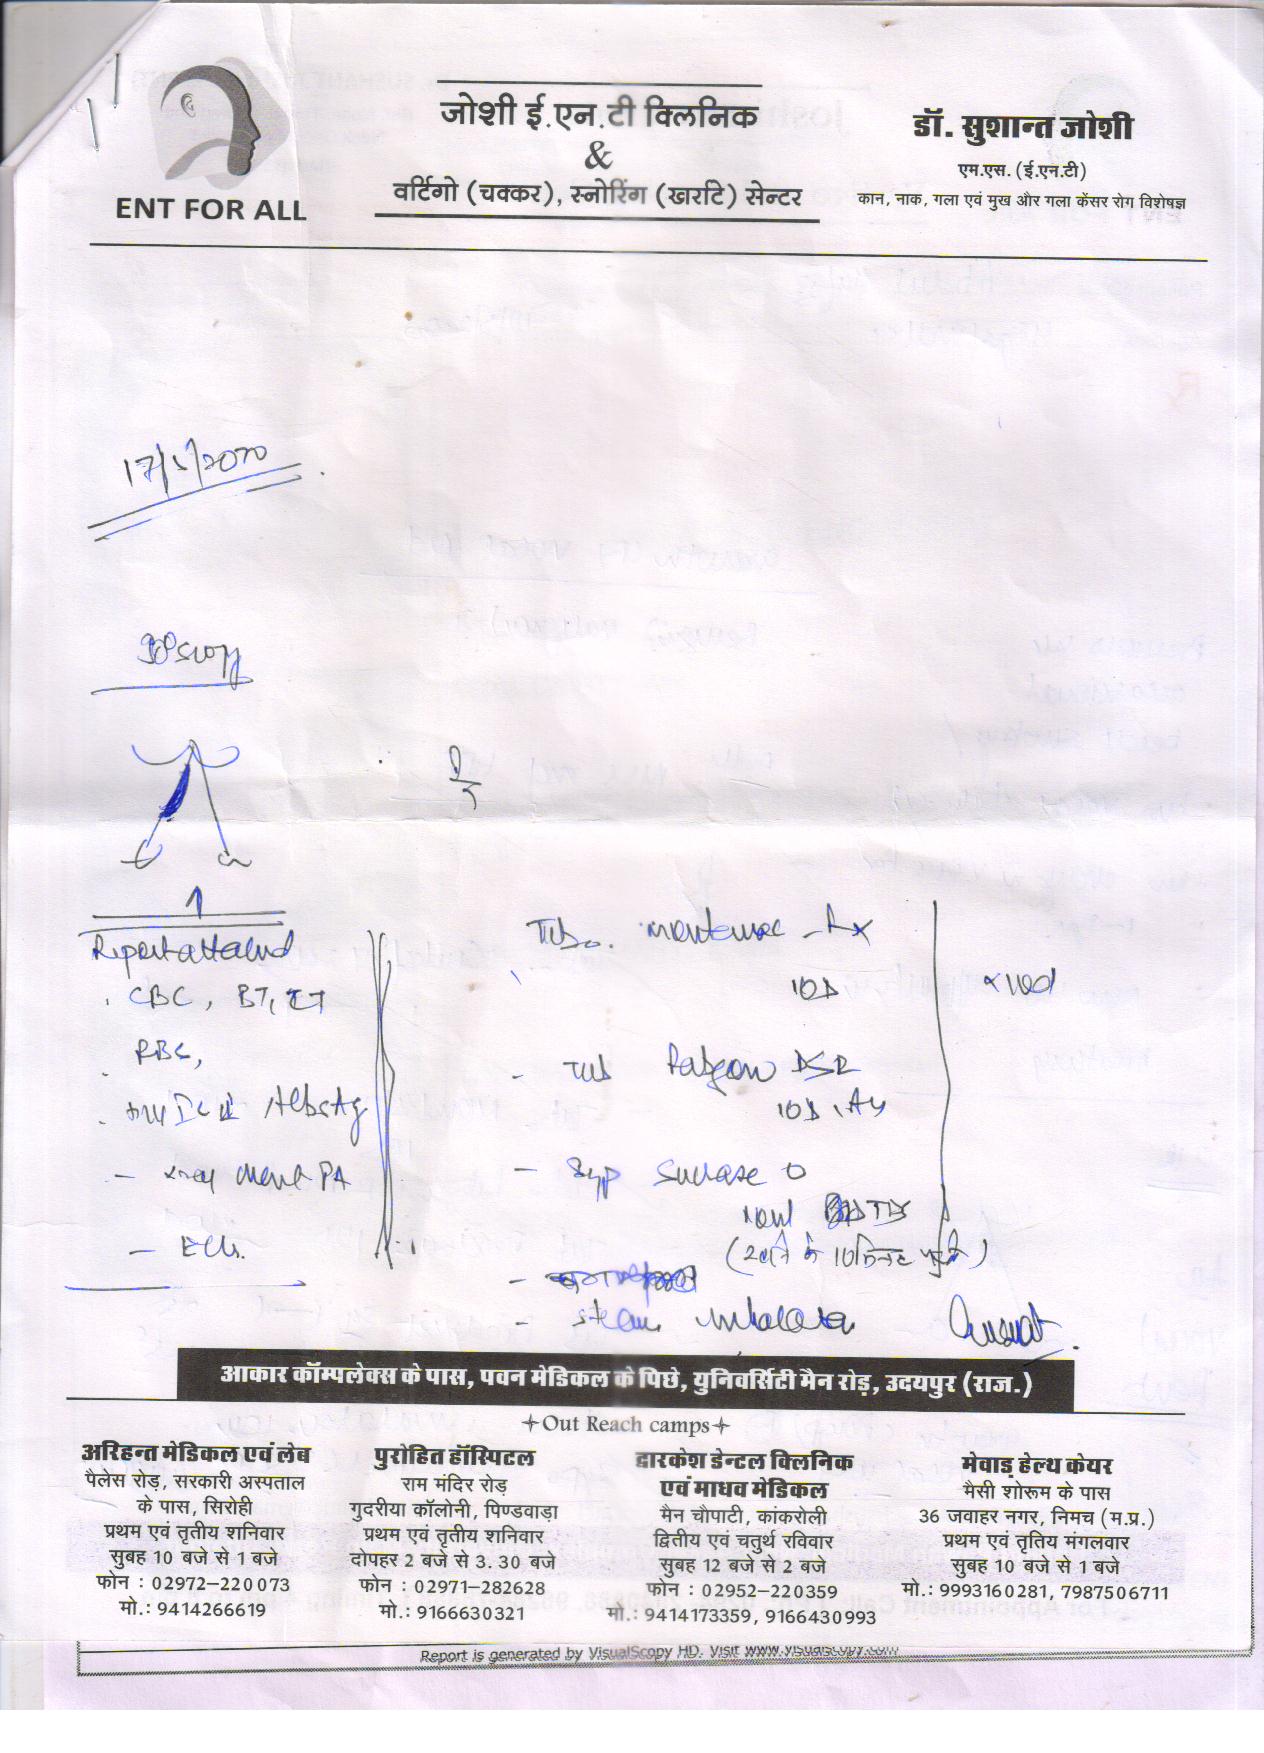 ENT FOR ALL
जोशी ई.एन.टी क्लिनिक
&
वर्टिगो (चक्कर), स्नोरिंग (खर्राटे) सेन्टर
डॉ. सुशान्त जोशी
एम.एस. (ई.एन.टी)
कान, नाक, गला एवं मुख और गला केंसर रोग विशेषज्ञ
17/5/2020
Report attached
CBC, BT, CT
RBC,
HbsAg
- xray chest PA
- ECG.
Tab.
10D
- Tab DSR
10D
- Syp Sucrase O
10ml TDS
- steam inhalation
आकार कॉम्पलेक्स के पास, पवन मेडिकल के पिछे, युनिवर्सिटी मैन रोड़, उदयपुर (राज.)
Out Reach camps
अरिहन्त मेडिकल एवं लेब
पैलेस रोड़, सरकारी अस्पताल
के पास, सिरोही
प्रथम एवं तृतीय शनिवार
सुबह 10 बजे से 1 बजे
फोन : 02972-220073
मो.: 9414266619
पुरोहित हॉस्पिटल
राम मंदिर रोड़
गुदरीया कॉलोनी, पिण्डवाड़ा
प्रथम एवं तृतीय शनिवार
दोपहर 2 बजे से 3.30 बजे
फोन : 02971-282628
मो.: 9166630321
द्वारकेश डेन्टल क्लिनिक
एवं माधव मेडिकल
मैन चौपाटी, कांकरोली
द्वितीय एवं चतुर्थ रविवार
सुबह 12 बजे से 2 बजे
फोन : 02952-220359
मो.: 9414173359, 9166430993
मेवाड़ हेल्थ केयर
मैसी शोरूम के पास
36 जवाहर नगर, निमच (म.प्र.)
प्रथम एवं तृतिय मंगलवार
सुबह 10 बजे से 1 बजे
मो.: 9993160281, 7987506711
Report is generated by VisualScopy HD. Visit www.visualscopy.com